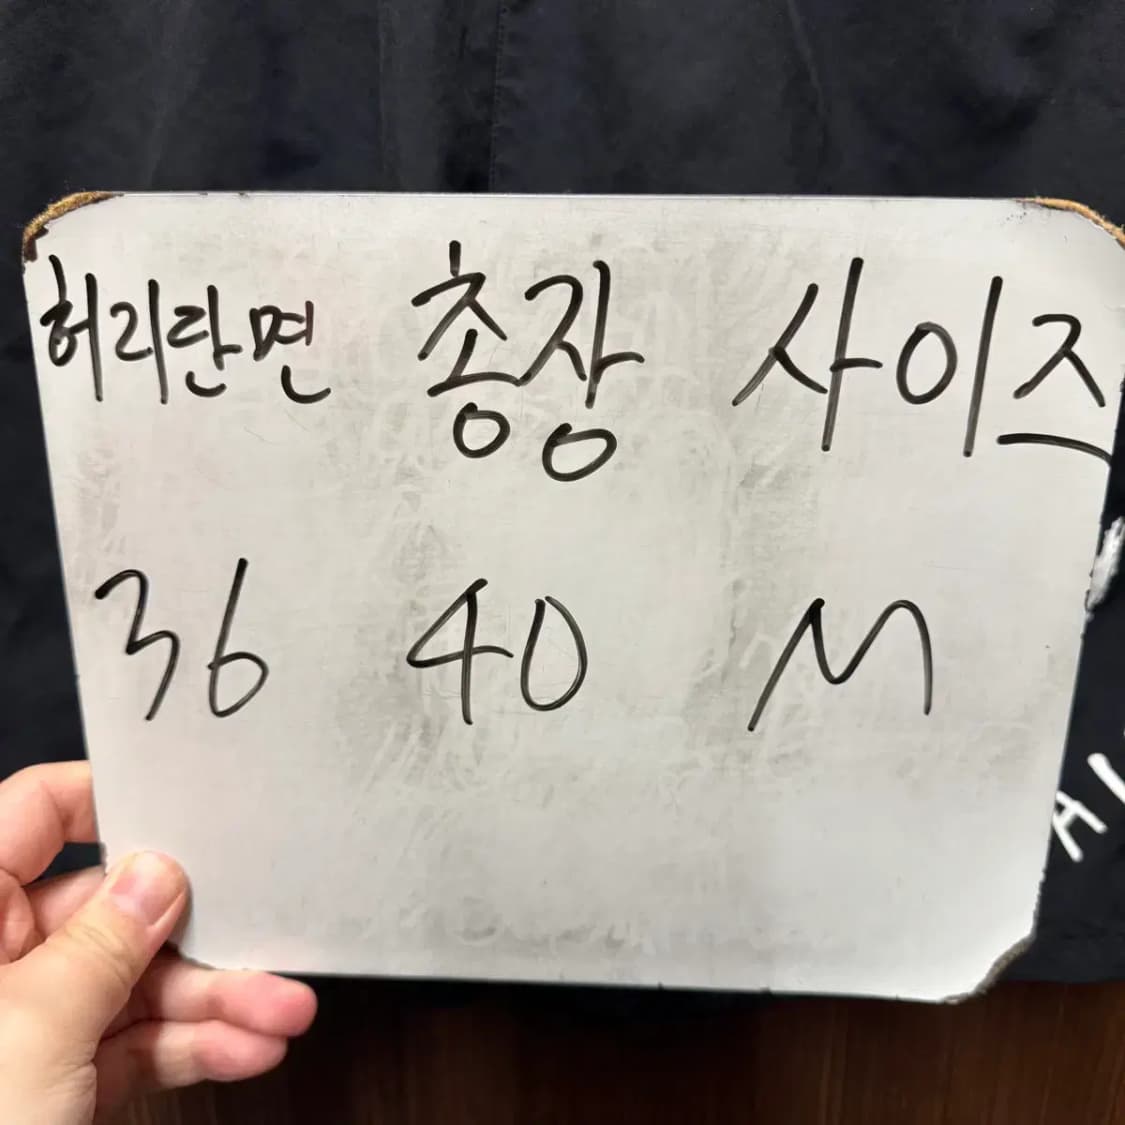 허리단면 총장 사이즈
36 40 M